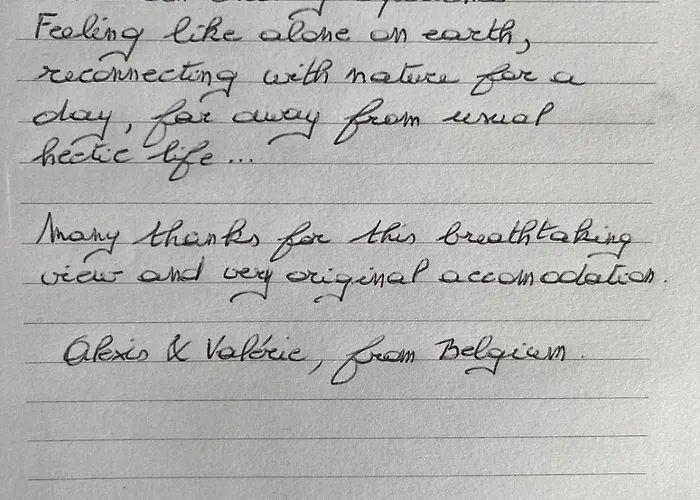 Feeling like alone on earth,
reconnecting with nature for a
day, far away from usual
hectic life...
Many thanks for this breathtaking
view and very original accomodation.
Alexis & Valérie, from Belgium.